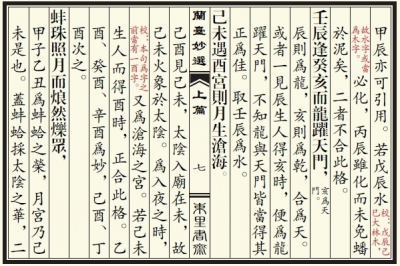 甲辰亦可引用。若戊辰水
故水字或當
為木字。
必化，丙辰雖化而未免蟠
校：戊辰己
巳大林木，
於泥矣，二者不合此格。
壬辰逢癸亥而龍躍天門，
亥為天
門。
辰則為龍，亥則為乾，合為天。
或者一見辰生人得亥時，便為龍
躍天門，不知龍與天門皆當得其
正為佳。取壬辰為水。
己未遇酉宮則月生滄海。
蘭臺妙選
上篇
七
東里書齋
己酉見己未，太陰入廟在未，故
己未火象於太陰。為入夜之時，
又為滄海之宮。若己未
校：本句為字之
前當有一酉字。
生人而得酉時，正合此格。乙
酉、癸酉、辛酉為妙，己酉、丁
酉次之。
蚌珠照月而煥然爍眾，
甲子乙丑為蚌蛤之榮，月宮乃己
未是也。蓋蚌蛤採太陰之華，二